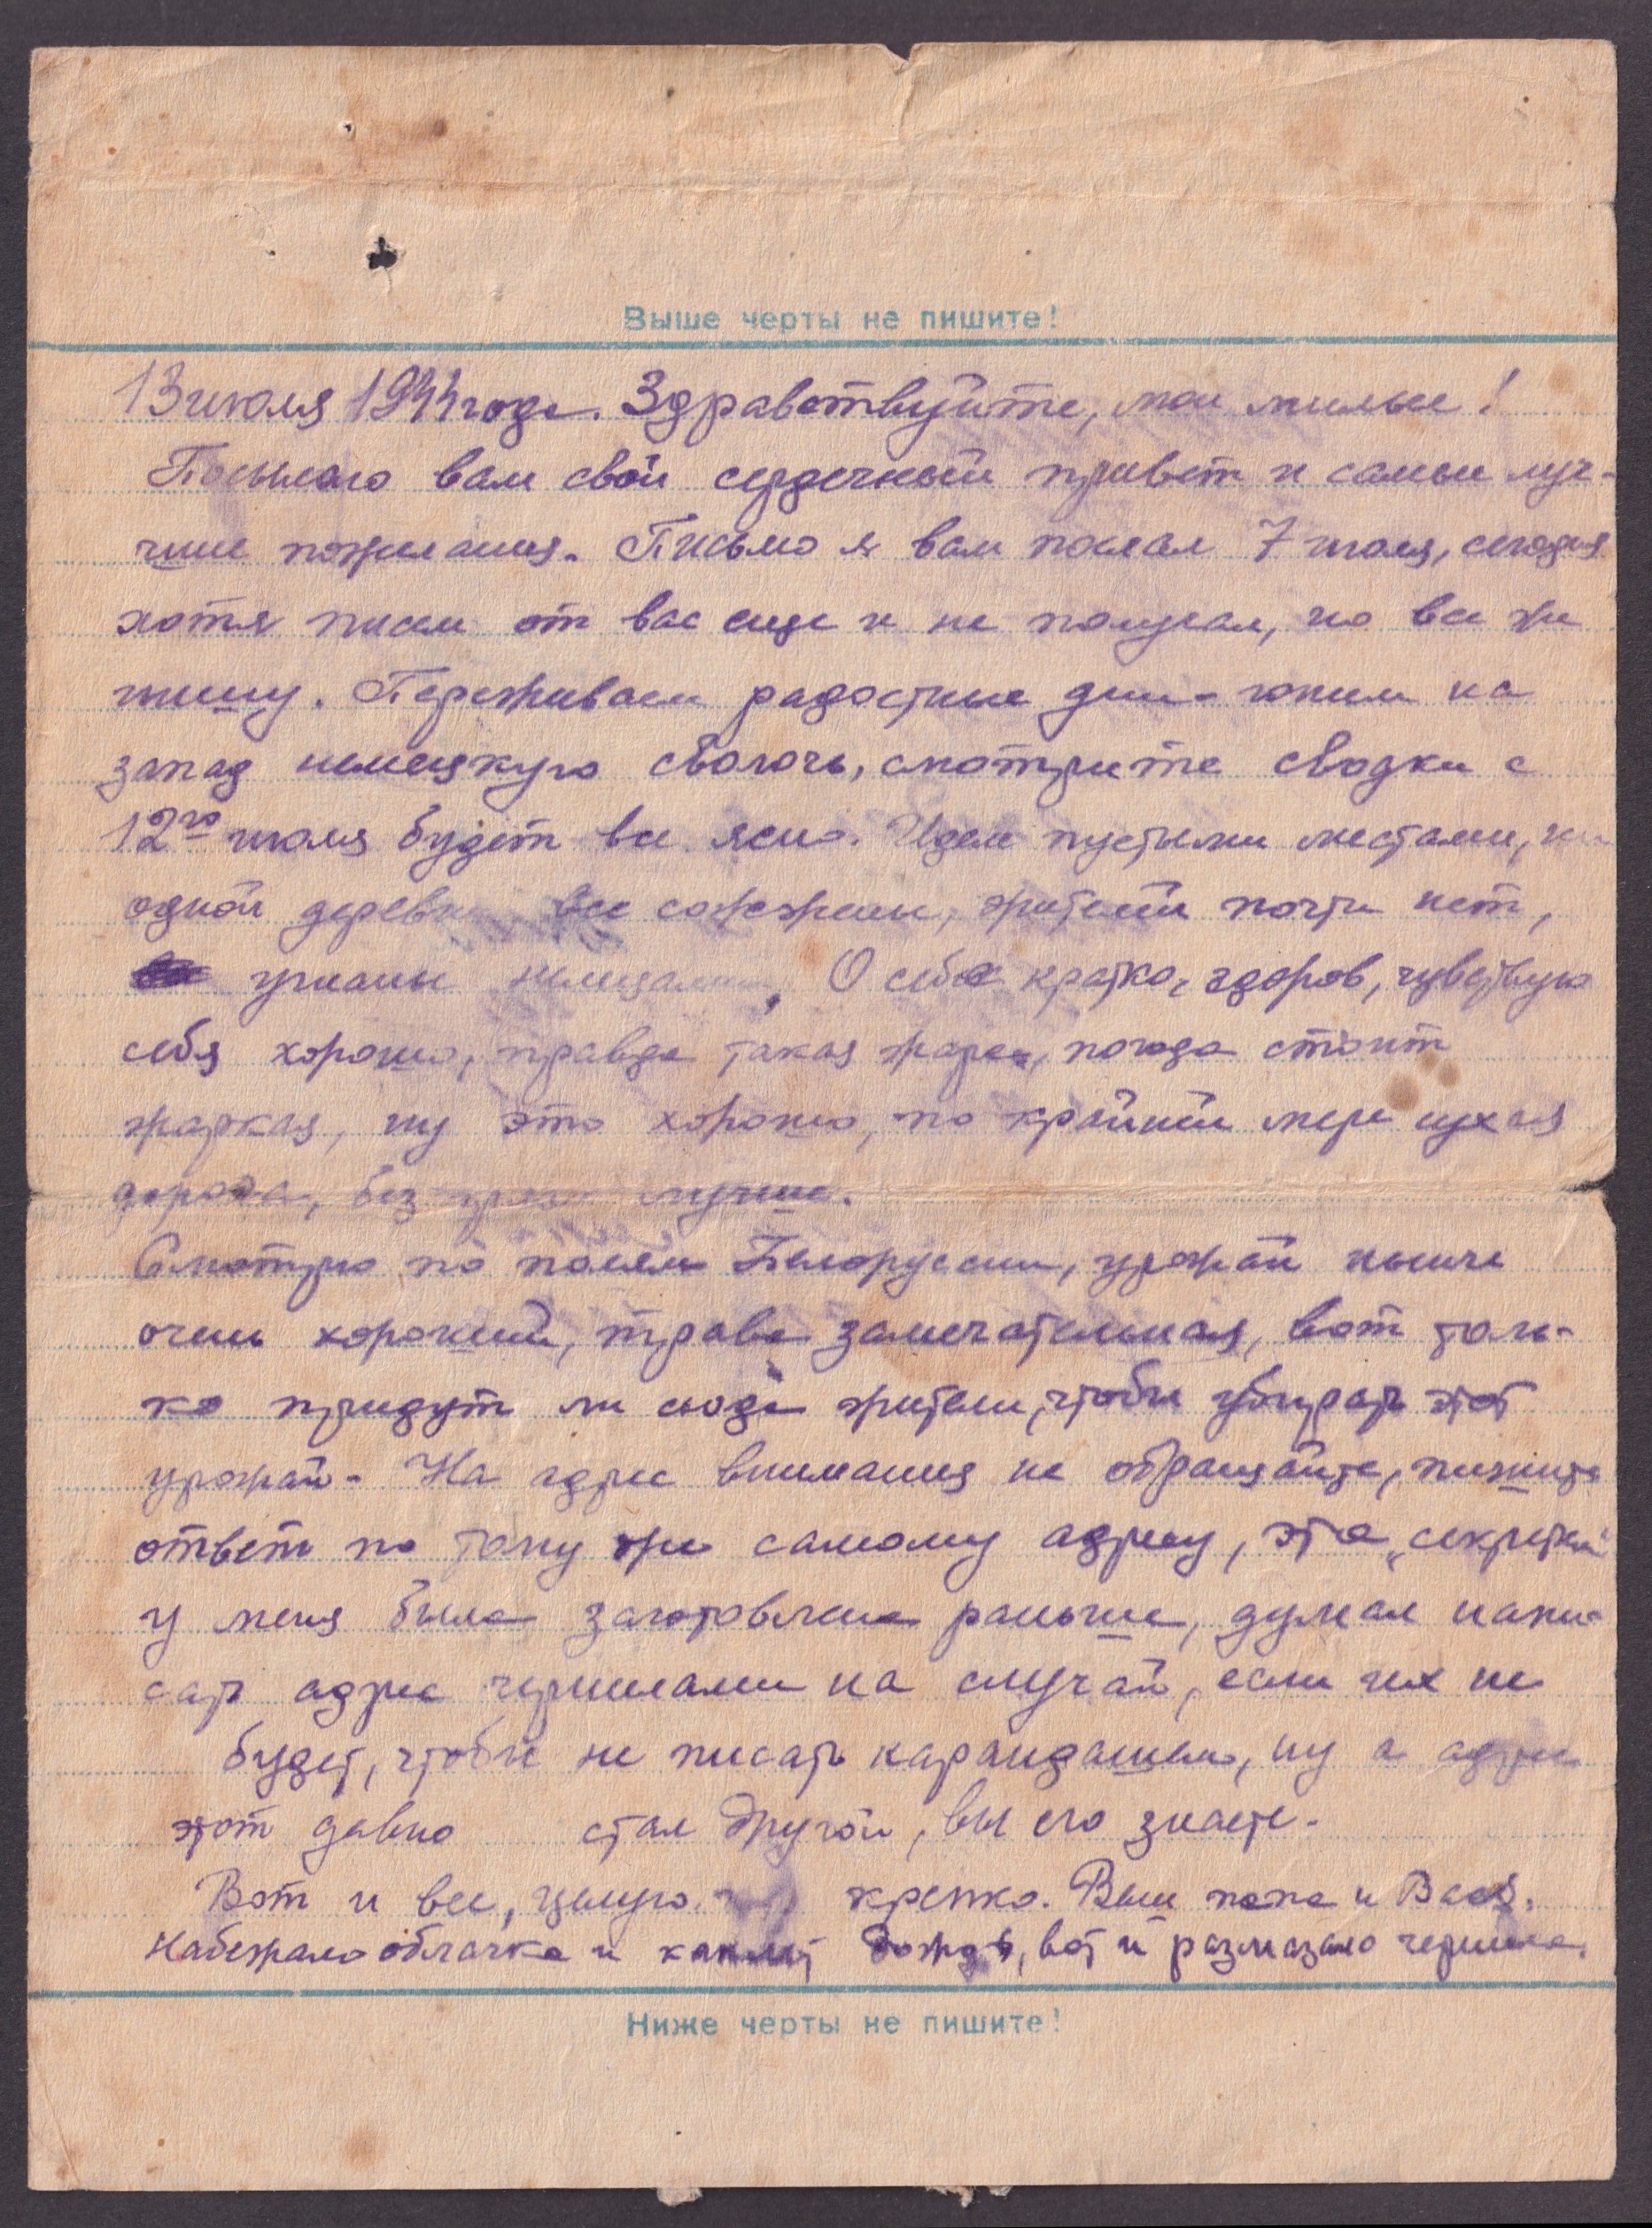 Выше черты не пишите!
13 июля 1944 года. Здравствуйте, мои милые!
Посылаю вам свой сердечный привет и самые луч-
шие пожелания. Письмо я вам послал 7 июля, сегодня
хотя писем от вас еще и не получал, но все же
пишу. Переживаем радостные дни - гоним на
запад немецкую сволочь, смотрите сводки с
12го июля будет все ясно. Идем пустыми местами, ни
одной деревни все сожжены, жителей почти нет,
угнаны немцами. О себе кратко, здоров, чувствую
себя хорошо, правда такая жара, погода стоит
жаркая, ну это хорошо, по крайней мере сухая
дорога, без грязи лучше.
Смотрю по полям Белоруссии, урожай нынче
очень хороший, трава замечательная, вот толь-
ко придут ли сюда жители, чтобы убирать этот
урожай. На адрес внимания не обращайте, пишите
ответ по тому же самому адресу, эта „секретка"
у меня была заготовлена раньше, думал напи-
сать адрес чернилами на случай, если их не
будет, чтобы не писать карандашом, ну а адрес
этот давно стал другой, вы его знаете.
Вот и все, целую крепко. Ваш папа и Вася.
Набежало облачко и капнул дождь, вот и размазало чернила.
Ниже черты не пишите!